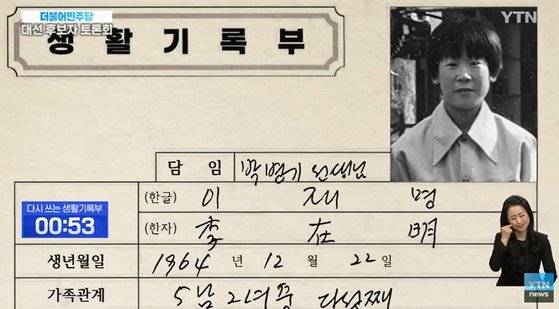 더불어민주당
대선 후보자 토론회
YTN
생활기록부
담 임 박병기 선생님
(한글) 이 재 명
다시 쓰는 생활기록부
00:53
(한자) 李 在 明
생년월일 1964 년 12 월 22 일
가족관계 5남 2녀 중 다섯째
YTN
news